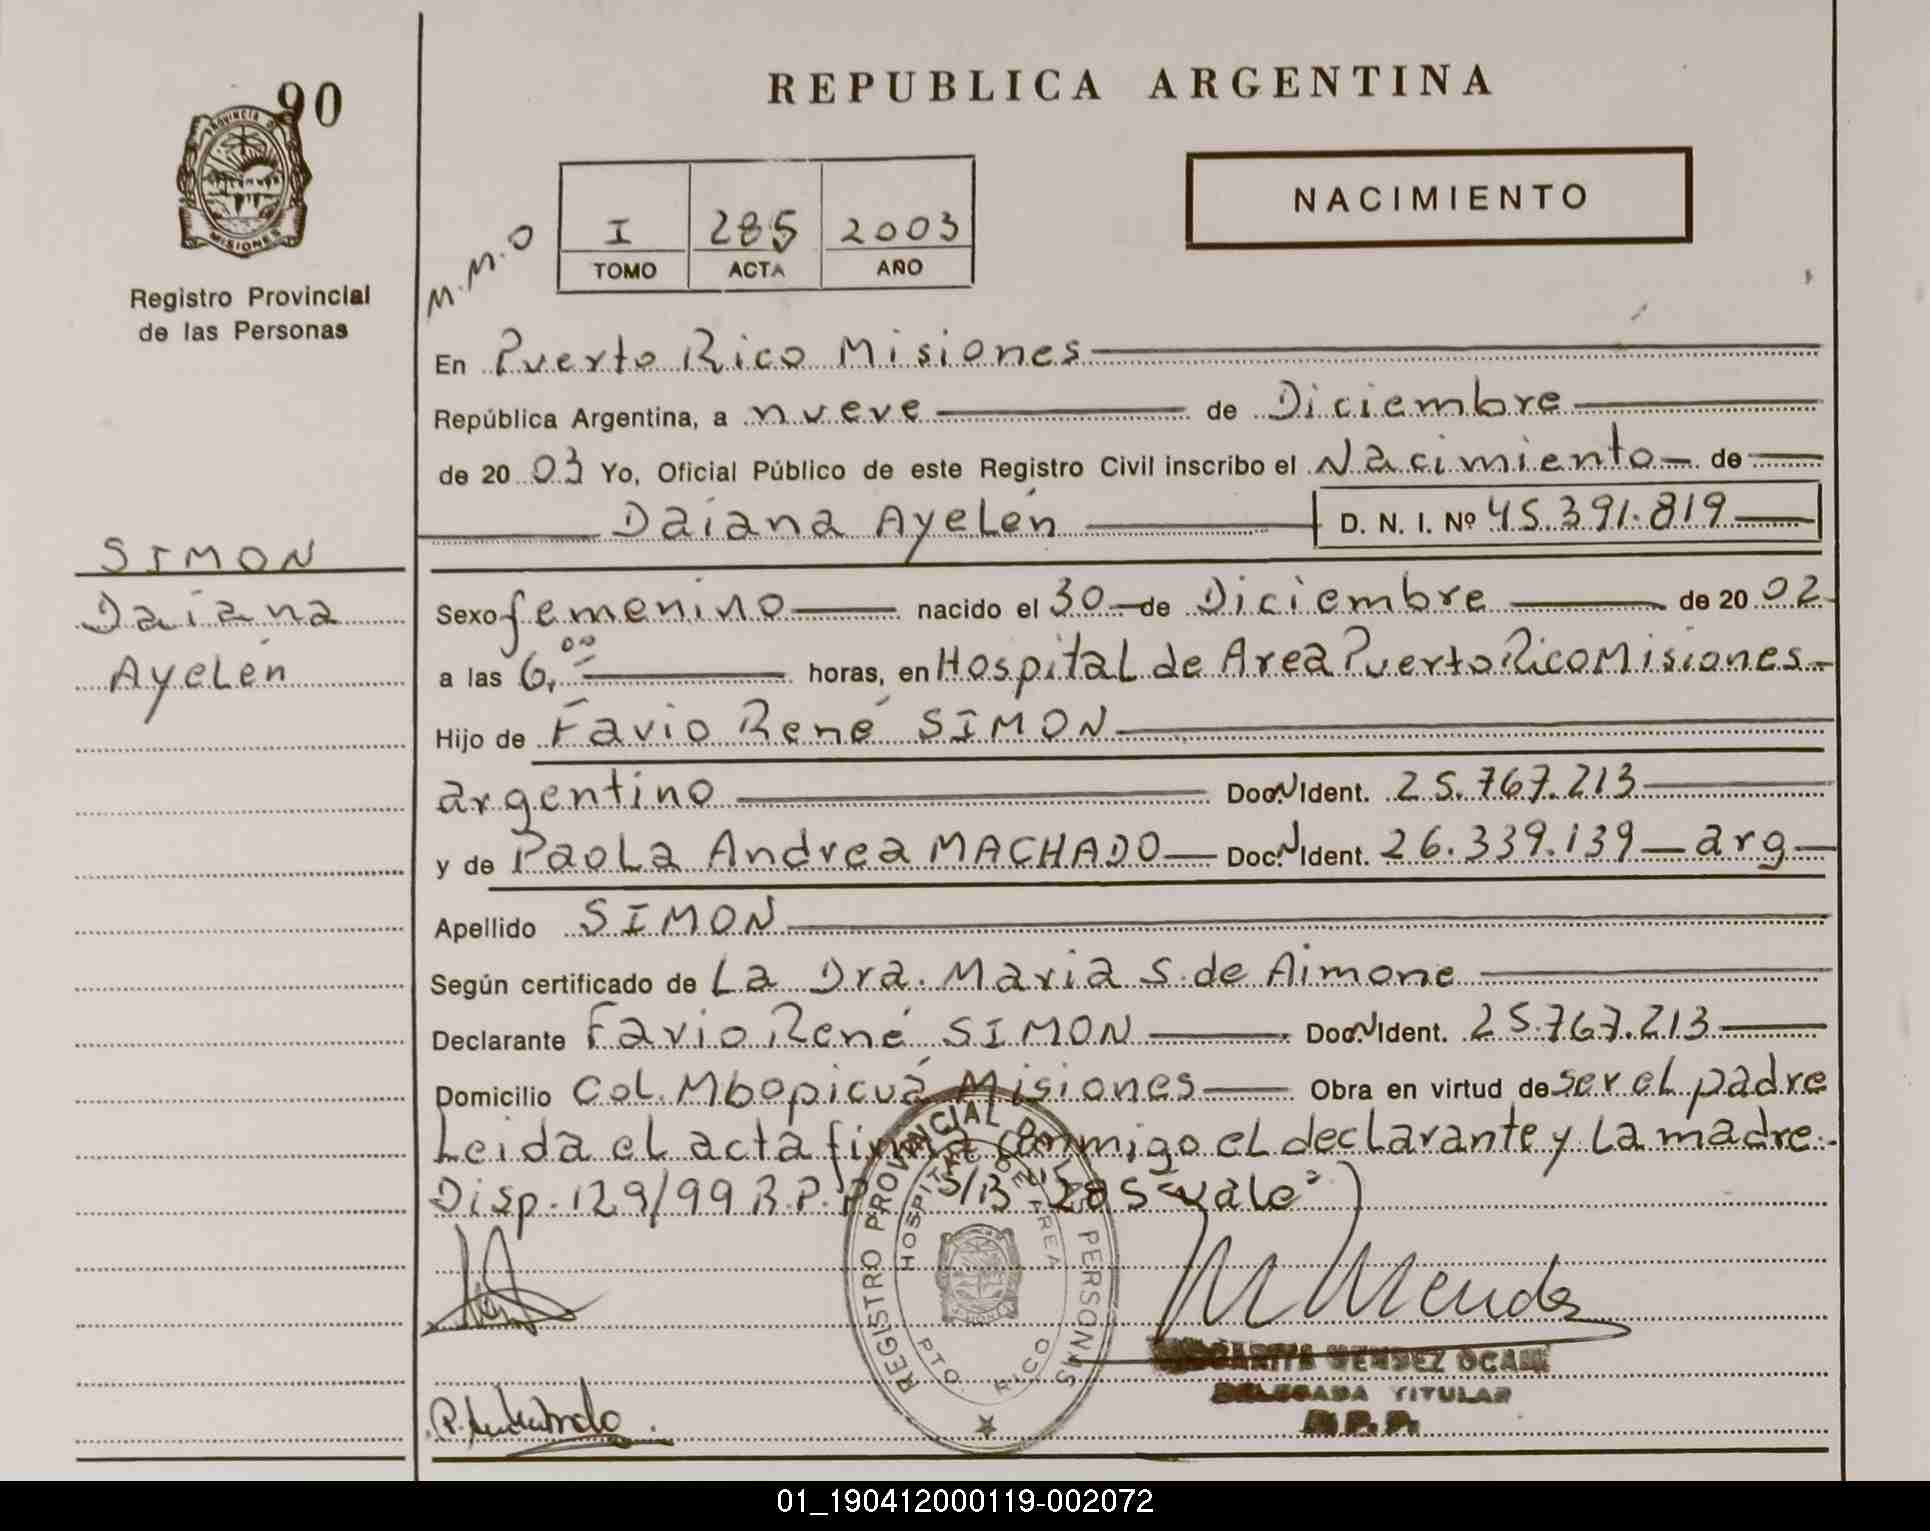 90
PROVINCIA DE
MISIONES
Registro Provincial
de las Personas
SIMON
Daiana
Ayelén
REPUBLICA ARGENTINA
NACIMIENTO
M.M.O
I 285 2003
TOMO ACTA AÑO
En Puerto Rico Misiones
República Argentina, a nueve de Diciembre
de 20 03 Yo, Oficial Público de este Registro Civil inscribo el Nacimiento de
Daiana Ayelén D. N. I. Nº 45.391.819
Sexo femenino nacido el 30 de Diciembre de 20 02
a las 6,00 horas, en Hospital de Area Puerto Rico Misiones
Hijo de Favio René SIMON
argentino Doc. N Ident. 25.767.213
y de Paola Andrea MACHADO Doc. N Ident. 26.339.139 arg
Apellido SIMON
Según certificado de La Dra. Maria S. de Aimone
Declarante Favio René SIMON Doc. N Ident. 25.767.213
Domicilio Col. Mbopicuá Misiones Obra en virtud de ser el padre
Leida el acta firma conmigo el declarante y la madre.
Disp. 129/99 R.P.P S/B "285 "vale"
REGISTRO PROVINCIAL DE LAS PERSONAS
HOSPITAL DE AREA
PTO. RICO
M Mendez
MENDEZ OCAM
DELEGADA TITULAR
R.P.P.
01_190412000119-002072